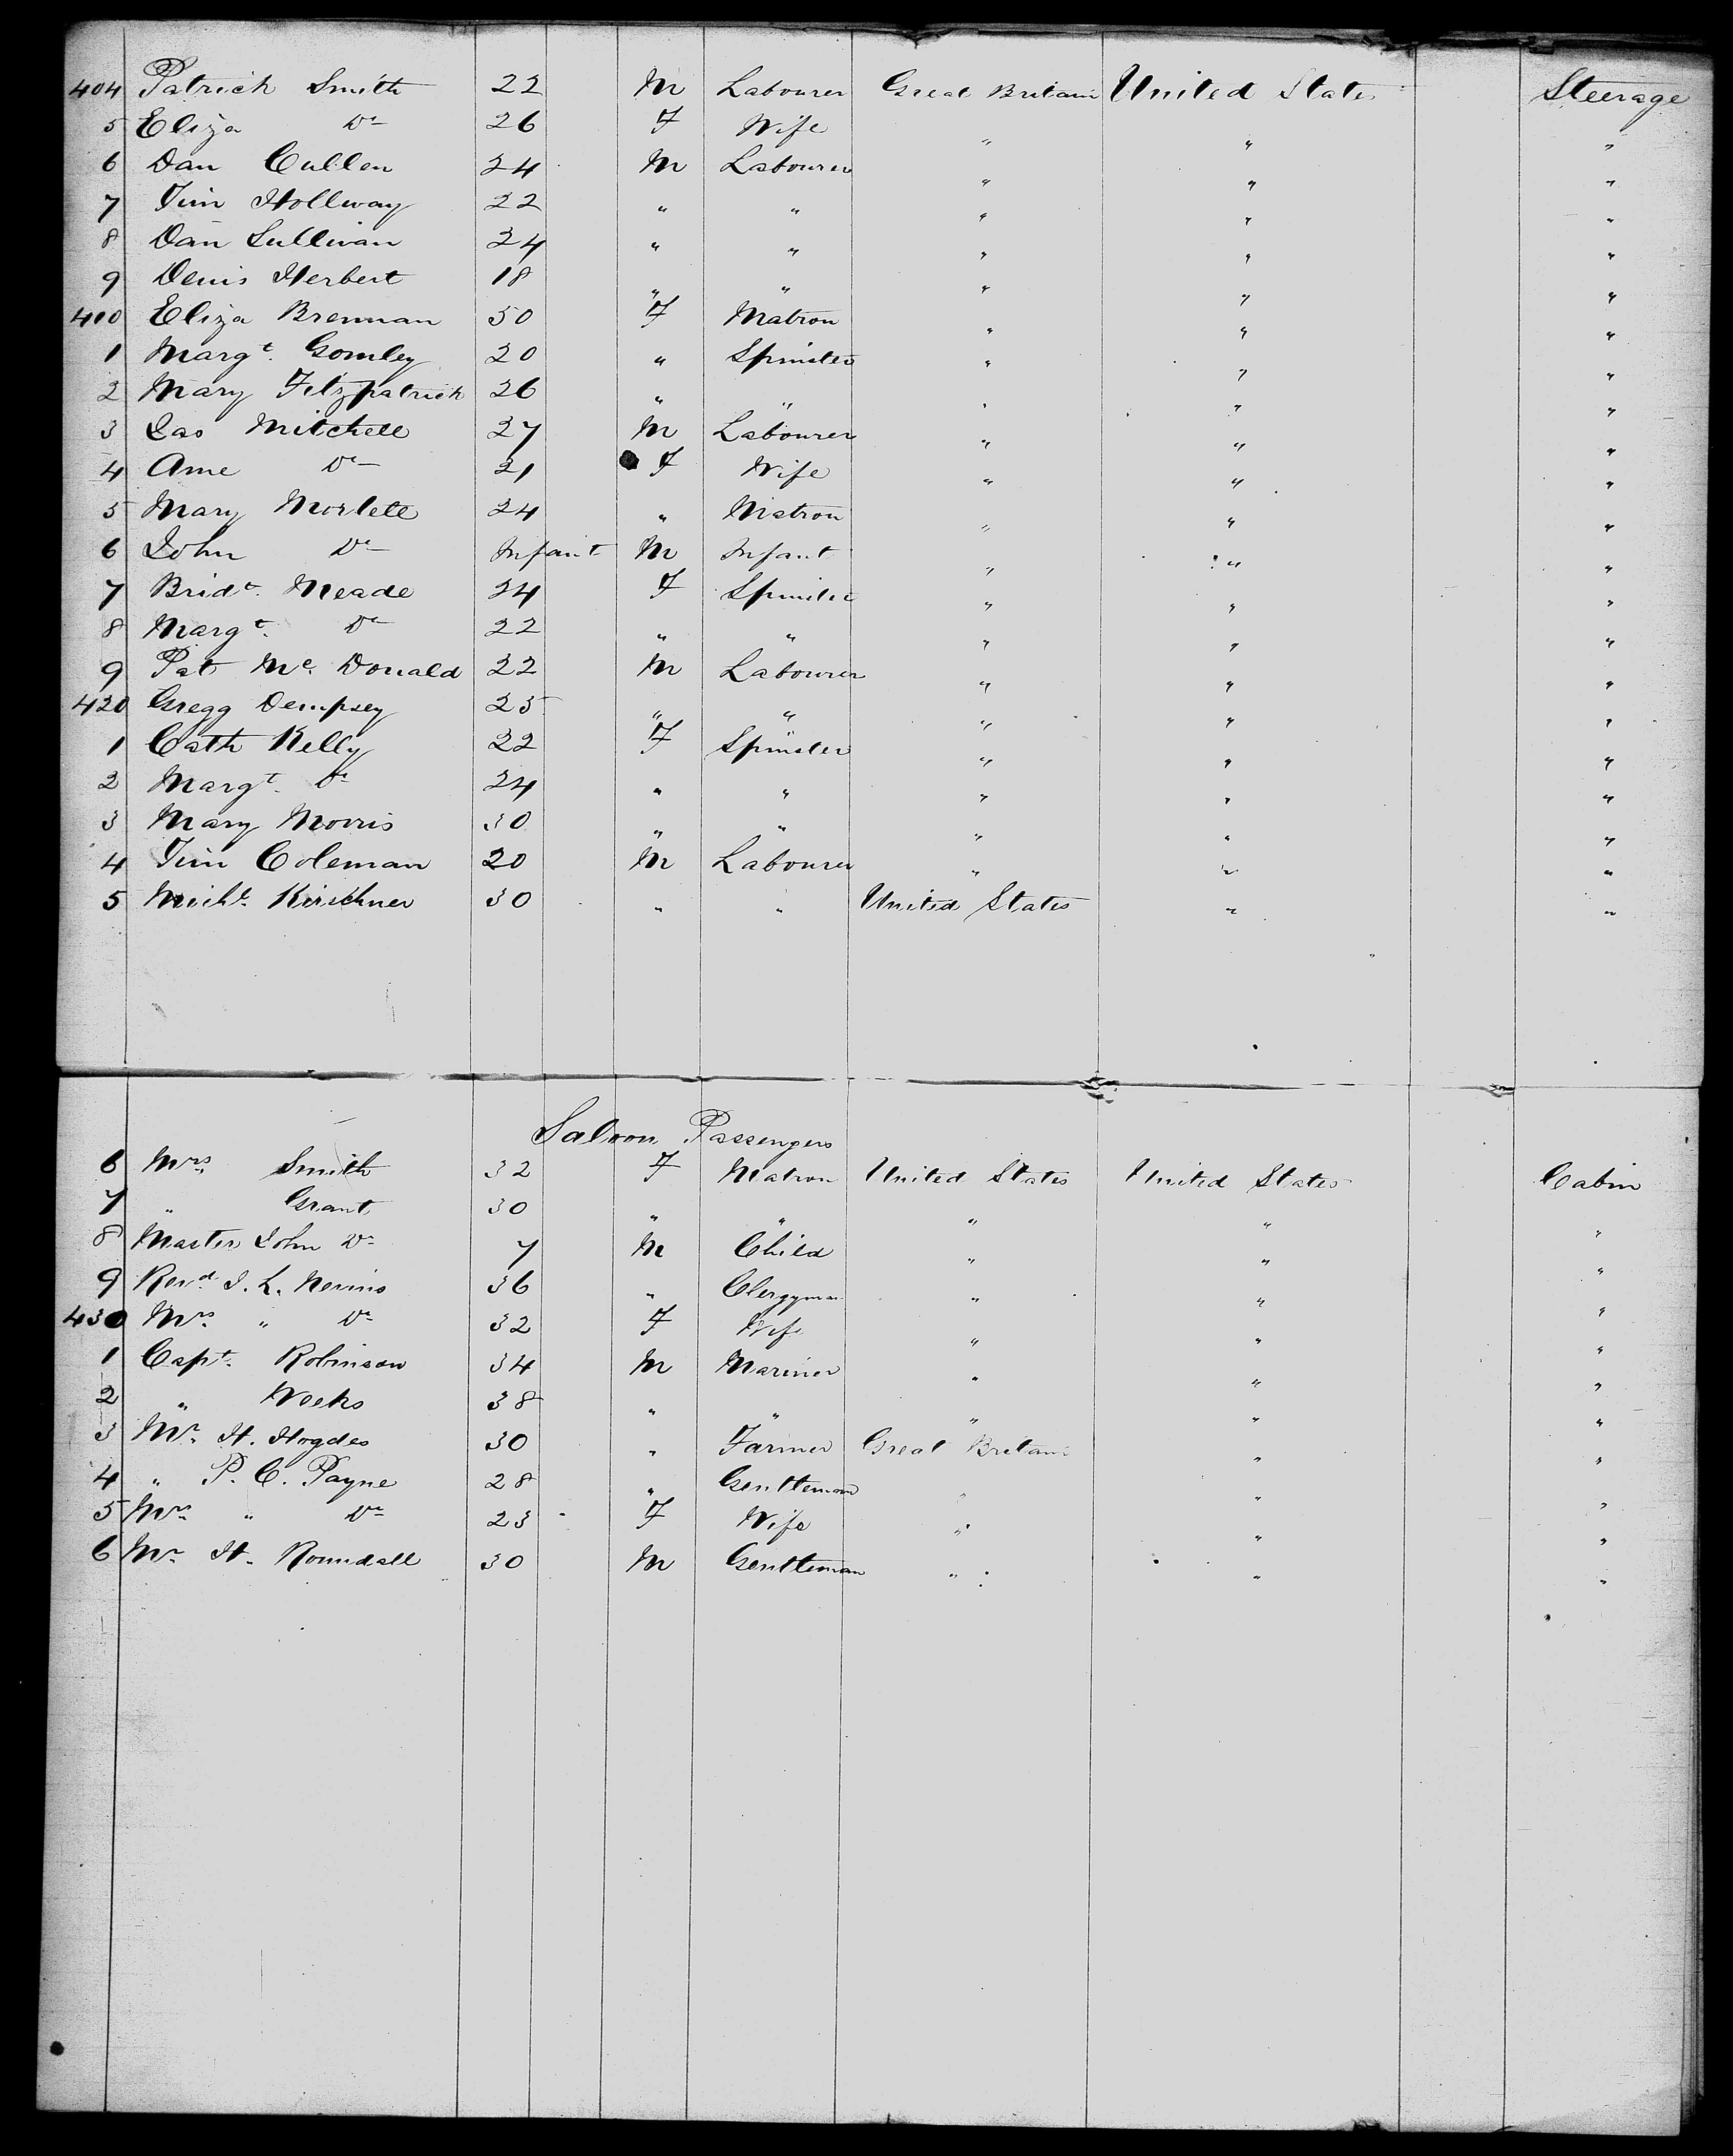 404 Patrick Smith 22 M Labourer Great Britain United States Steerage
5 Eliza Do 26 F Wife " " "
6 Dan Cullen 24 M Labourer " " "
7 Tim Hollway 22 " " " " "
8 Dan Sullivan 24 " " " " "
9 Denis Herbert 18 " " " " "
410 Eliza Brennan 50 F Matron " " "
1 Margt. Gomley 20 " Spinster " " "
2 Mary Fitzpatrick 26 " " " " "
3 Jas Mitchell 27 M Labourer " " "
4 Ame Do 21 F Wife " " "
5 Mary Morlett 24 " Matron " " "
6 John Do Infant M Infant " " "
7 Bridt. Meade 24 F Spinster " " "
8 Margt. Do 22 " " " " "
9 Pat Mc. Donald 22 M Labourer " " "
420 Gregg Dempsey 25 " " " " "
1 Cath Kelly 22 F Spinster " " "
2 Margt. Do 24 " " " " "
3 Mary Morris 30 " " " " "
4 Tim Coleman 20 M Labourer " " "
5 Michl. Kirschner 30 " " United States " "
Saloon Passengers
6 Mrs. Smith 32 F Matron United States United States Cabin
7 " Grant 30 " " " " "
8 Master John Do 7 M Child " " "
9 Revd. J. L. Nevins 36 " Clergyman " " "
430 Mrs. " Do 32 F Wife " " "
1 Capt. Robinson 34 M Mariner " " "
2 " Weeks 38 " " " " "
3 Mr. H. Hogdes 30 " Farmer Great Britain " "
4 " P. C. Payne 28 " Gentleman " " "
5 Mrs. " Do 23 F Wife " " "
6 Mr. H. Roundell 30 M Gentleman " " "